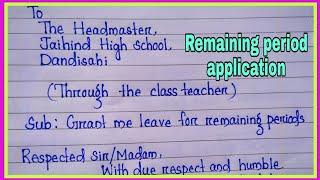 To
The Headmaster,
Jaihind High school,
Dandisahi
(Through the class teacher)
Sub: Grant me leave for remaining periods
Respected Sir/Madam,
With due respect and humble
Remaining period
application